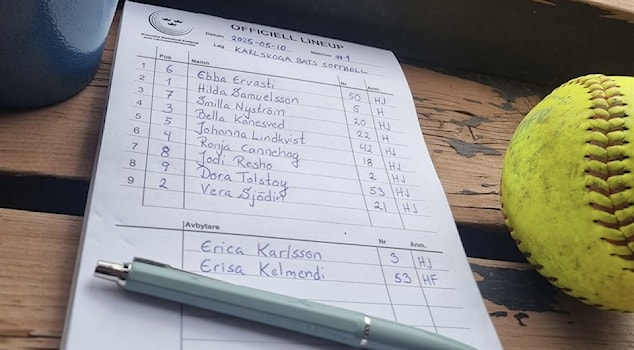 OFFICIELL LINEUP
Datum 2025-05-10
Lag KARLSKOGA BATS SOFTBOLL Matchnr #1
Pos Namn Nr Anm.
1 6 Ebba Ervasti 50 HJ
2 1 Hilda Samuelsson 5 H
3 7 Smilla Nyström 20 HJ
4 3 Bella Kanesved 22 H
5 5 Johanna Lindkvist 42 HJ
6 4 Ronja Cannehag 18 HJ
7 8 Jodi Resho 2 HJ
8 9 Dora Tolstoy 53 HJ
9 2 Vera Sjödin 21 HJ
Avbytare Nr Anm.
Erica Karlsson 3 HJ
Erisa Kelmendi 53 HF